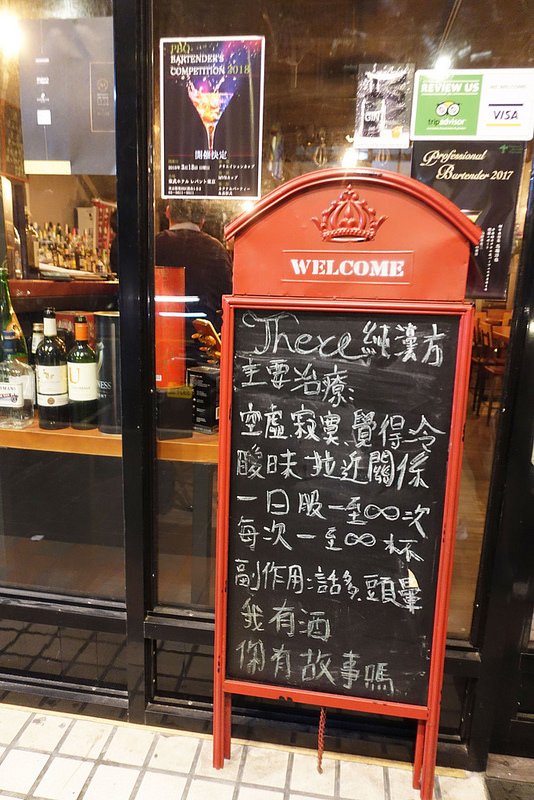 PBO
BARTENDER'S
COMPETITION 2018
開催決定
REVIEW US
tripadvisor
VISA
Professional
Bartender 2017
WELCOME
There 純漢方
主要治療:
空虛、寂寞、覺得冷
曖昧 拉近關係
一日服一至∞次
每次一至∞杯
副作用:話多、頭暈
我有酒
你有故事嗎